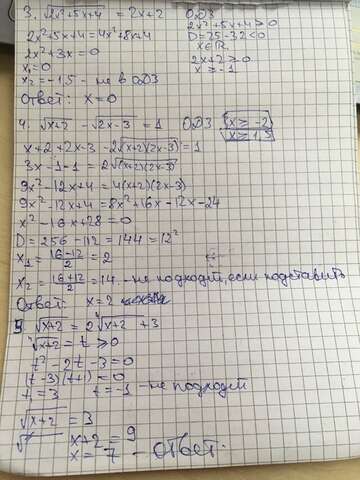 3. √2x²+5x+4 = 2x+2 ОДЗ
2x²+5x+4>0
2x²+5x+4=4x²+8x+4 D=25-32<0
x∈R.
2x²+3x=0 2x+2≥0
x₁=0 x≥-1
x₂=-1,5 - не в ОДЗ
Ответ: x=0
4. √x+2 - √2x-3 = 1 ОДЗ {x≥-2
x≥1,5
x+2+2x-3-2√(x+2)(2x-3)=1
3x-1-1=2√(x+2)(2x-3)
9x²-12x+4=4(x+2)(2x-3)
9x²-12x+4=8x²+16x-12x-24
x²-16x+28=0
D=256-112=144=12²
x₁=(16-12)/2=2
x₂=(16+12)/2=14. - не подходит, если подставить
Ответ: x=2
5 √x+2 = 2∜x+2 +3
∜x+2 = t ≥0
t²-2t-3=0
(t-3)(t+1)=0
t=3 t=-1 - не подходит
√x+2 = 3
x+2=9
x=7 - ответ.